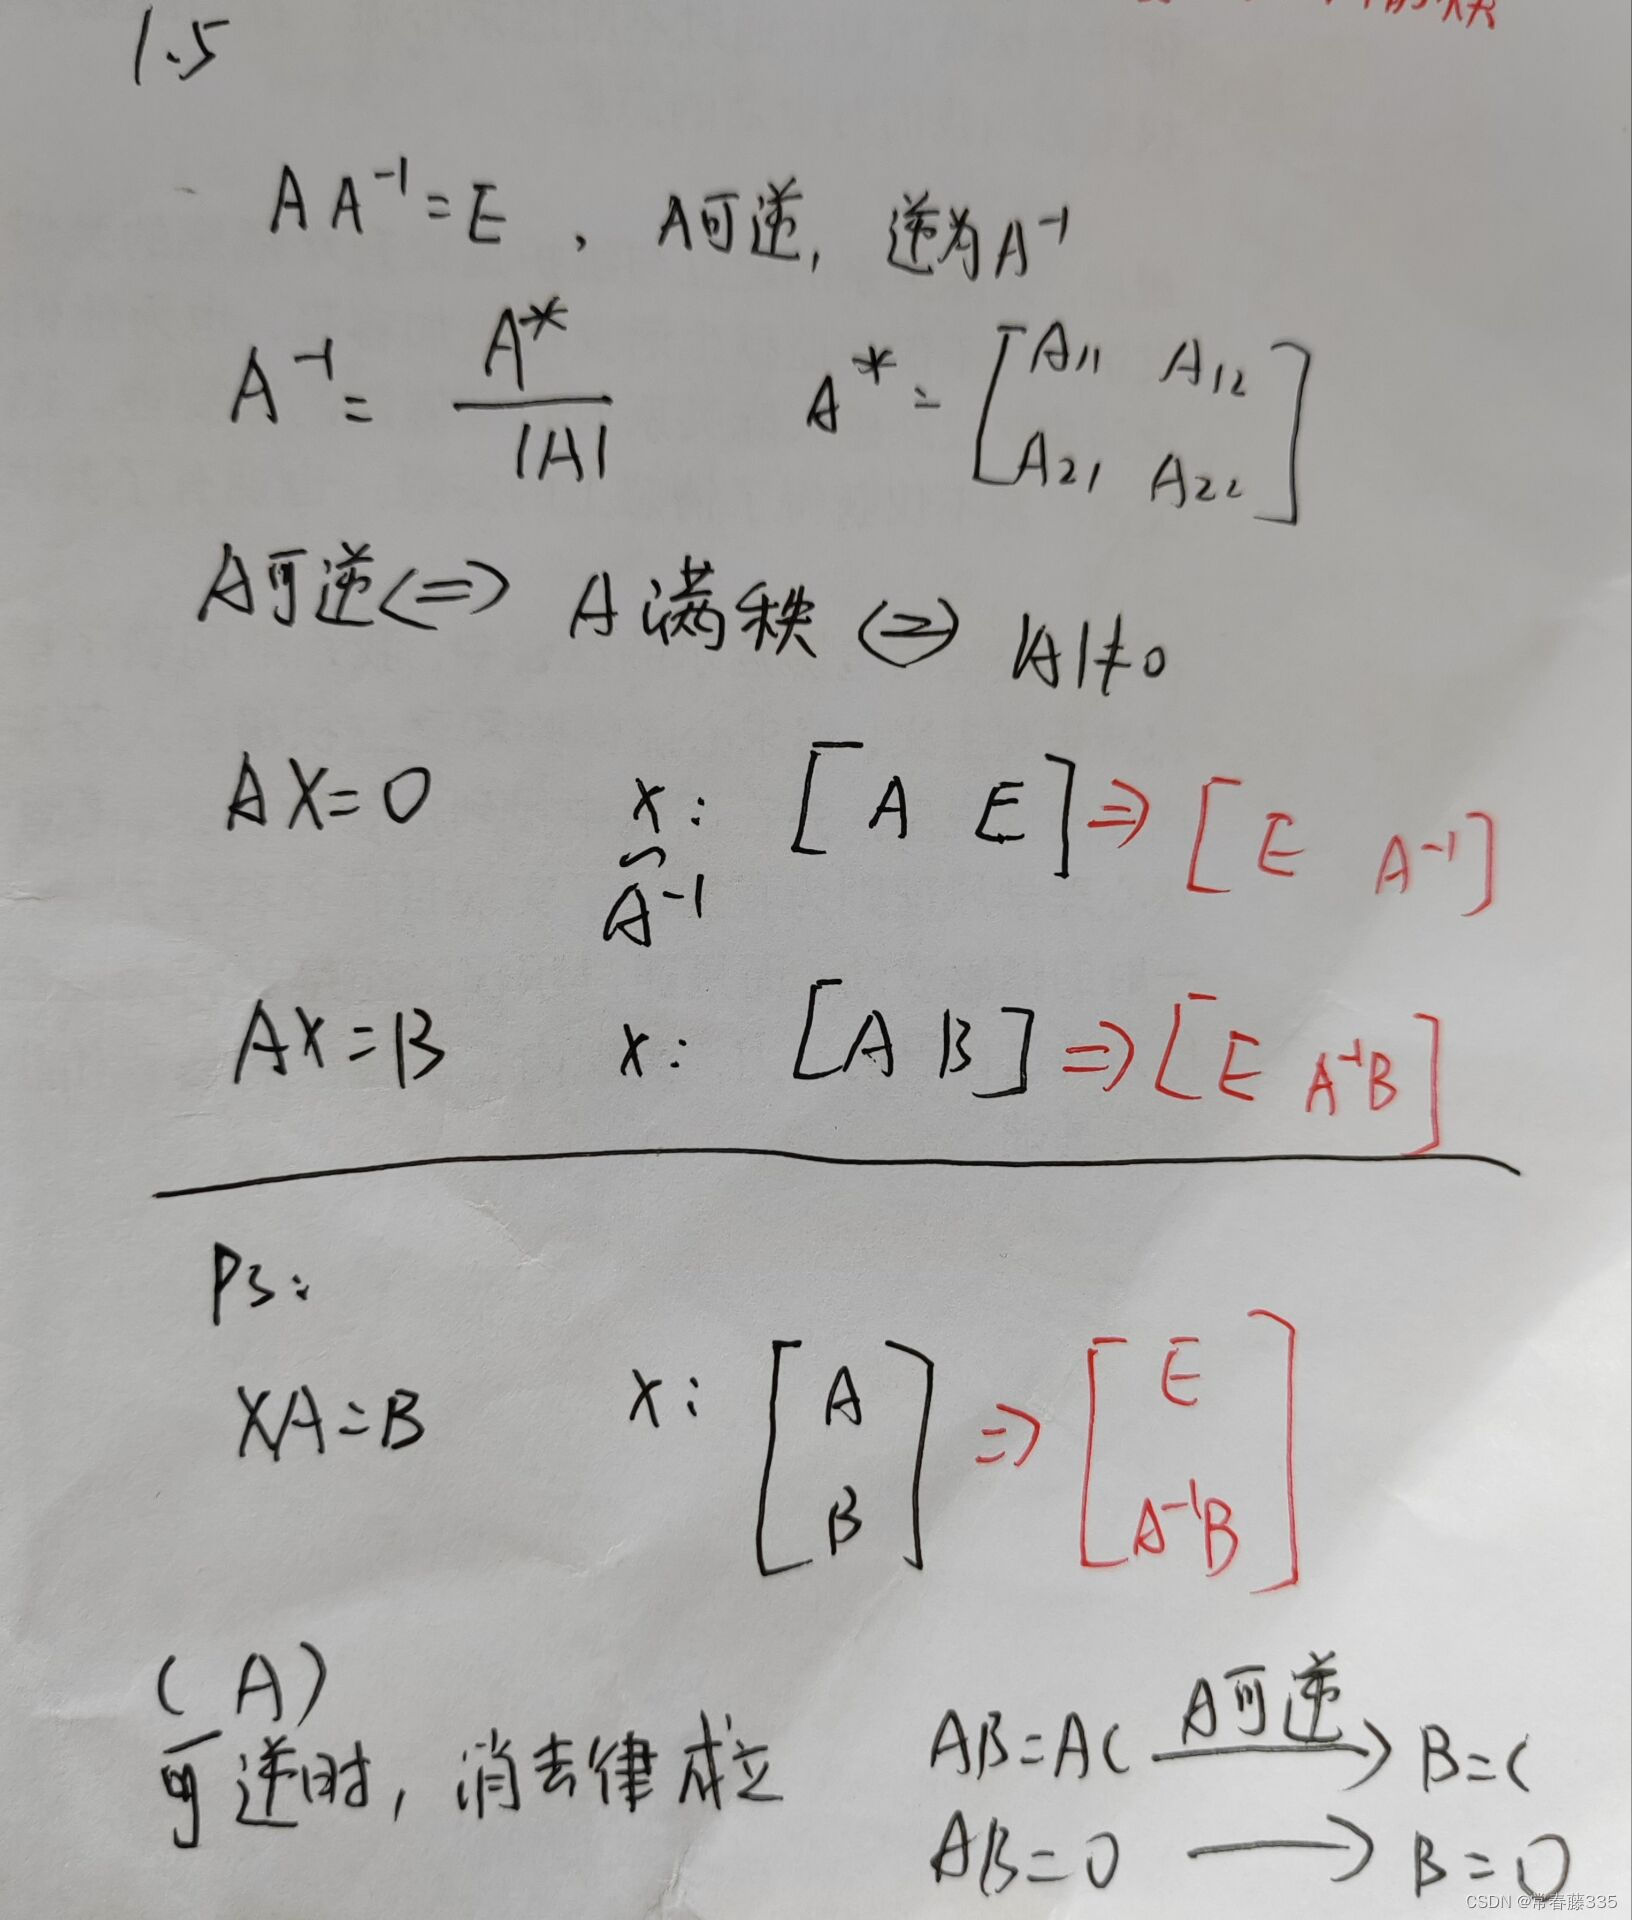 1.5
A A⁻¹ = E , A可逆, 逆为A⁻¹
A⁻¹ = A* / |A|   A* = [A₁₁ A₁₂
A₂₁ A₂₂]
A可逆 <=> A满秩 <=> |A|≠0
AX=0   x: [A E] => [E A⁻¹]
A⁻¹
AX=B   x: [A B] => [E A⁻¹B]
PS:
XA=B   x: [A
B] => [E
A⁻¹B]
(A)
可逆时, 消去律成立
AB=AC A可逆 → B=C
AB=0 → B=0
CSDN @常春藤335